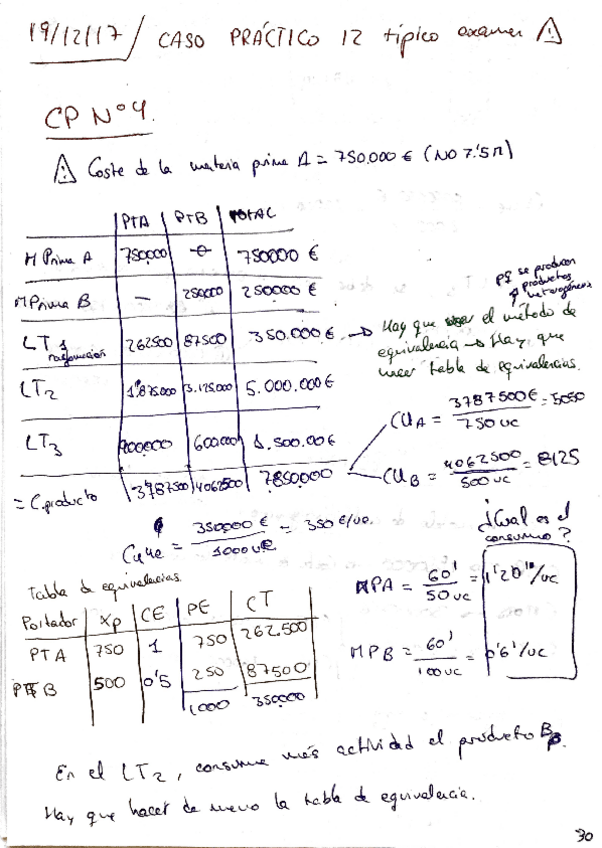 19/12/17 / CASO PRÁCTICO 12 típico examen ⚠
CP Nº 4.
⚠ Coste de la materia prima A = 750.000 € (NO 7'5 M)
PTA | PTB | TOTAL
M Prima A | 750000 | 0 | 750000 €
M Prima B | — | 250000 | 250000 €
LT1 | 262500 | 87500 | 350.000 € → Hay que usar el método de
equivalencia → Hay que
hacer tabla de equivalencias.
pq se producen
productos
heterogéneos
LT2 | 1.875.000 | 3.125.000 | 5.000.000 €
LT3 | 900000 | 600000 | 1.500.00 €
= C. producto | 3787500 | 4062500 | 7.850.000
CUA = 3787500 € / 750 uc = 5050
CUB = 4062500 / 500 uc = 8125
Cuue = 350000 € / 1000 ue = 350 €/ue.
Tabla de equivalencias.
Portador | Xp | CE | PE | CT
PTA | 750 | 1 | 750 | 262.500
PTB | 500 | 0'5 | 250 | 87500
1000 | 350000
¿Cual es el
consumo?
MPA = 60' / 50 uc = 1'20 /uc
MPB = 60' / 100 uc = 0'6' /uc
En el LT2, consume más actividad el producto B.
Hay que hacer de nuevo la tabla de equivalencia.
30